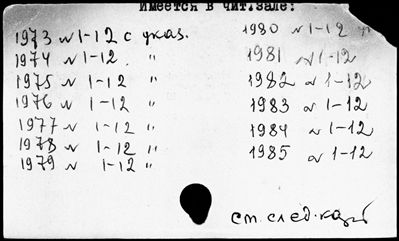 Имеется в чит.зале:
1973 N 1-12 с указ.
1974 N 1-12 "
1975 N 1-12 "
1976 N 1-12 "
1977 N 1-12 "
1978 N 1-12 "
1979 N 1-12 "
1980 N 1-12 "
1981 N 1-12
1982 N 1-12
1983 N 1-12
1984 N 1-12
1985 N 1-12
см. след.